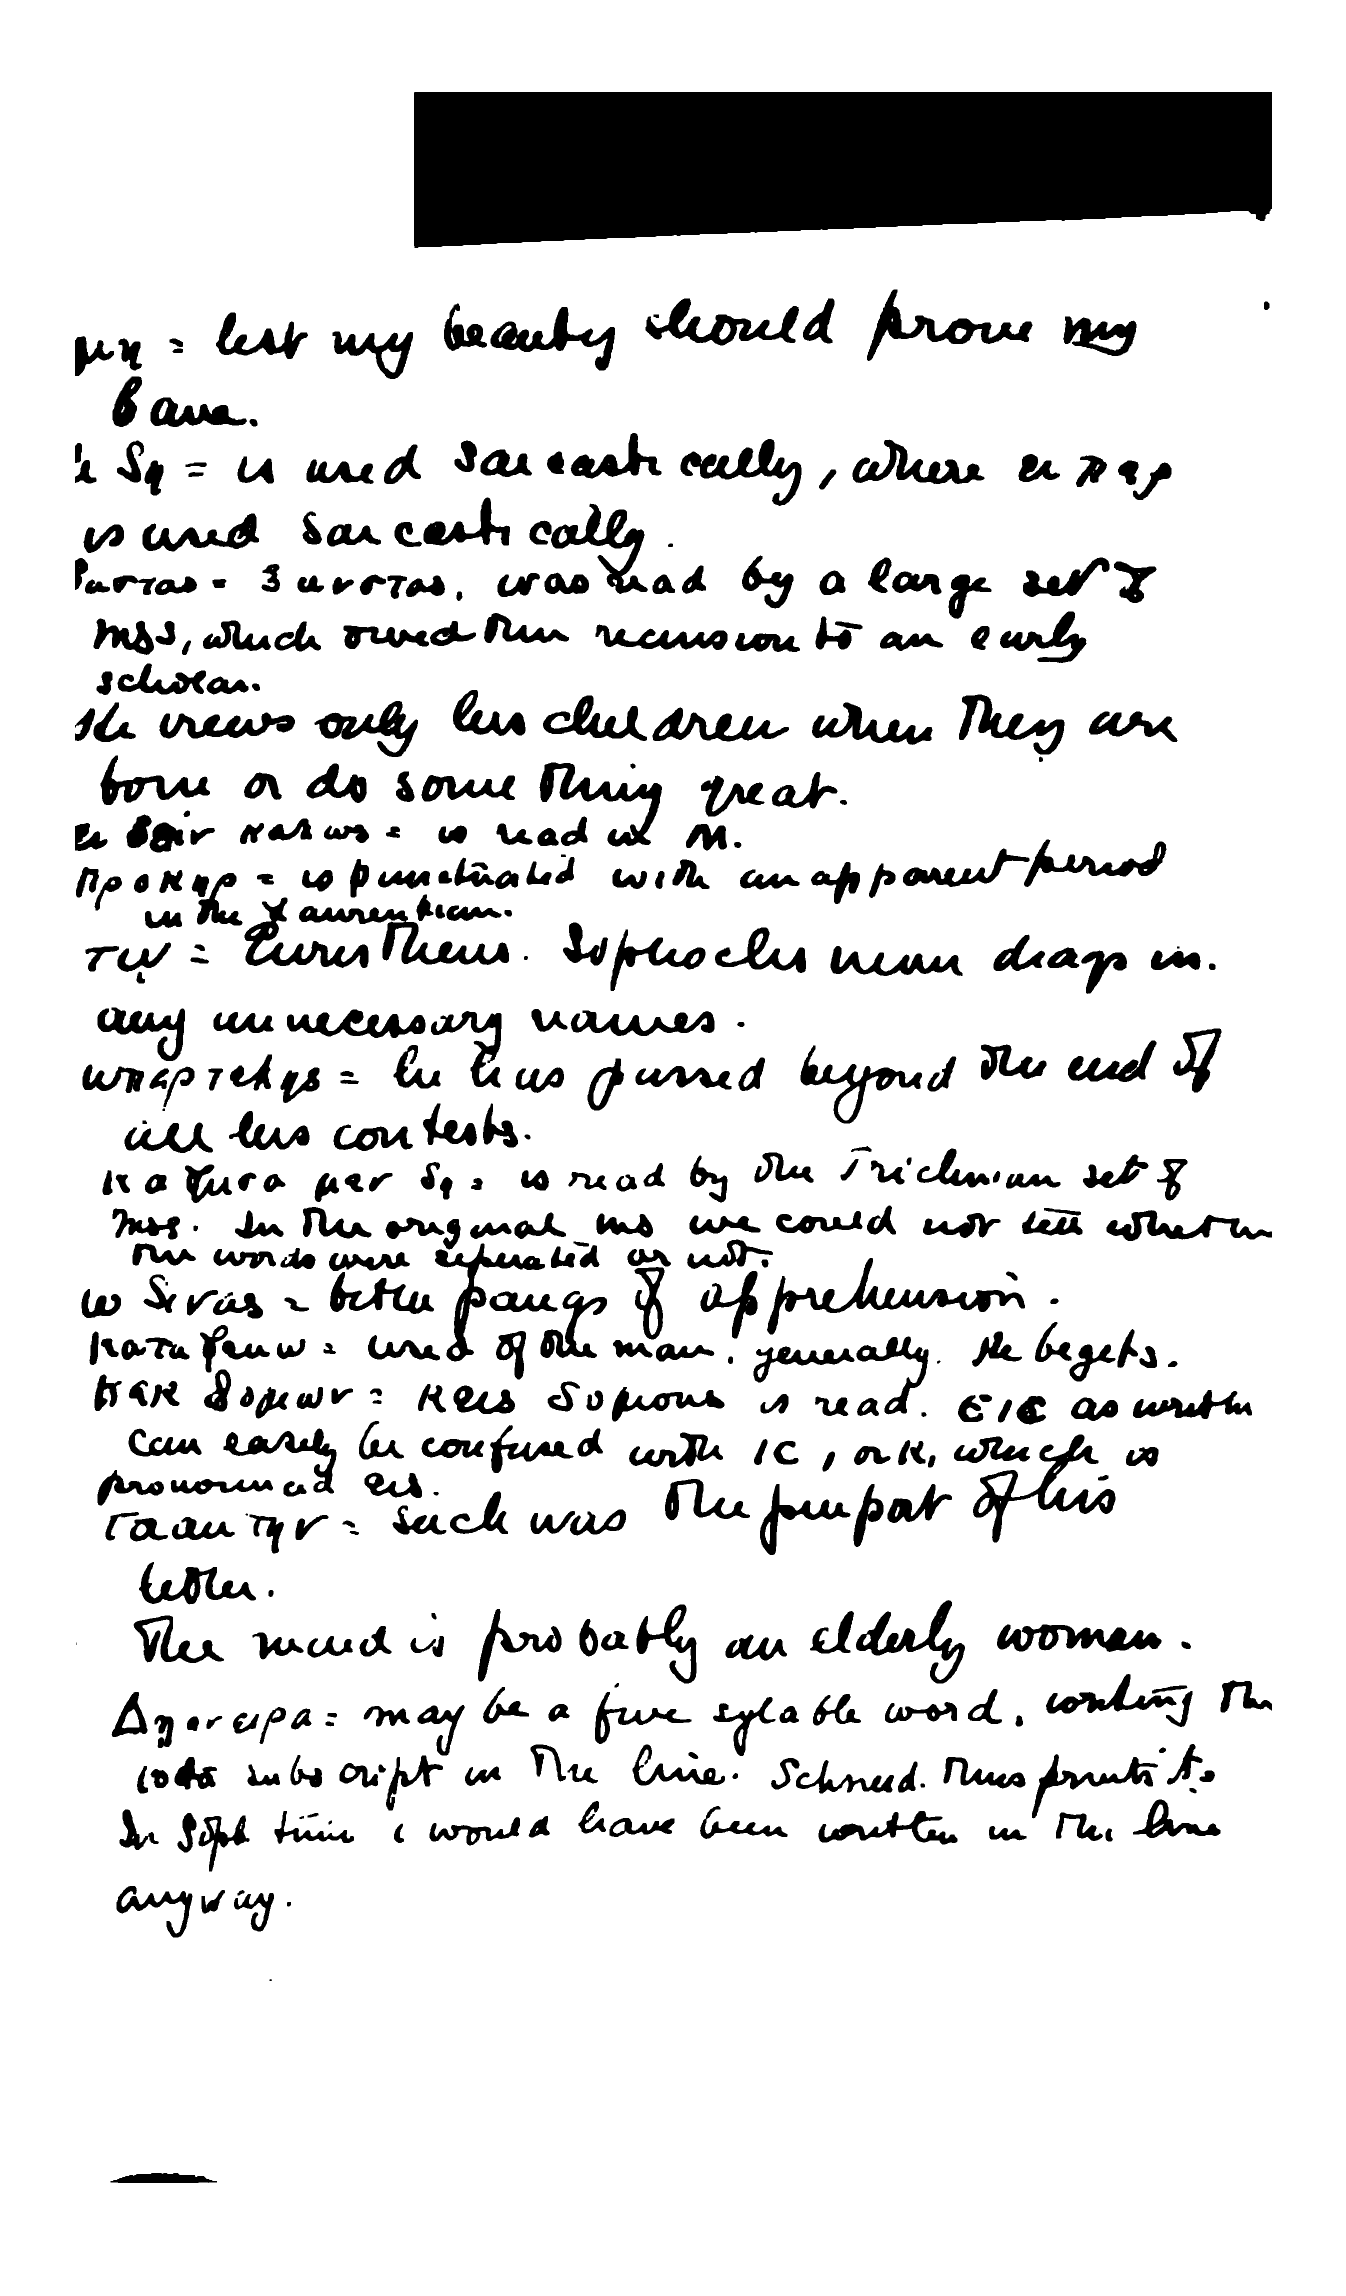 μη = lest my beauty should prove my
bane.
δη = is used sarcastically, where ει παρ
is used sarcastically.
ξυνστας. was read by a large set of
Mss, which owed their recension to an early
scholar.
He views only his children when they are
born or do something great.
καλως = is read in M.
προκηρ = is punctuated with an apparent period
in the Laurentian.
τω = Euristheus. Sophocles never drags in.
any unnecessary names.
υπερτελης = he has passed beyond the end of
all his contests.
μεν δη = is read by the Triclinian set of
Mss. In the original ms we could not tell whether
the words were seperated or not.
ωδινας = bitter pangs of apprehension.
used of the man, generally. He begets.
κακ δομων = κεις δομους is read. ΕΙC as written
can easily be confused with IC, or κ, which is
pronounced εις.
ταυτην = such was the purport of his
letter.
The maid is probably an elderly woman.
Δηανειρα = may be a five sylable word, writing the
iota subscript in the line. Schneid. thus prints it.
In Soph time ι would have been written in the line
anyway.